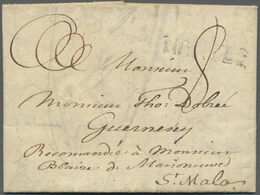 Monsieur 8
Monsieur Tho: Dobrée
Guernesey
Recomandée à Monsieur
Blaize de Maisonneuve
St. Malo